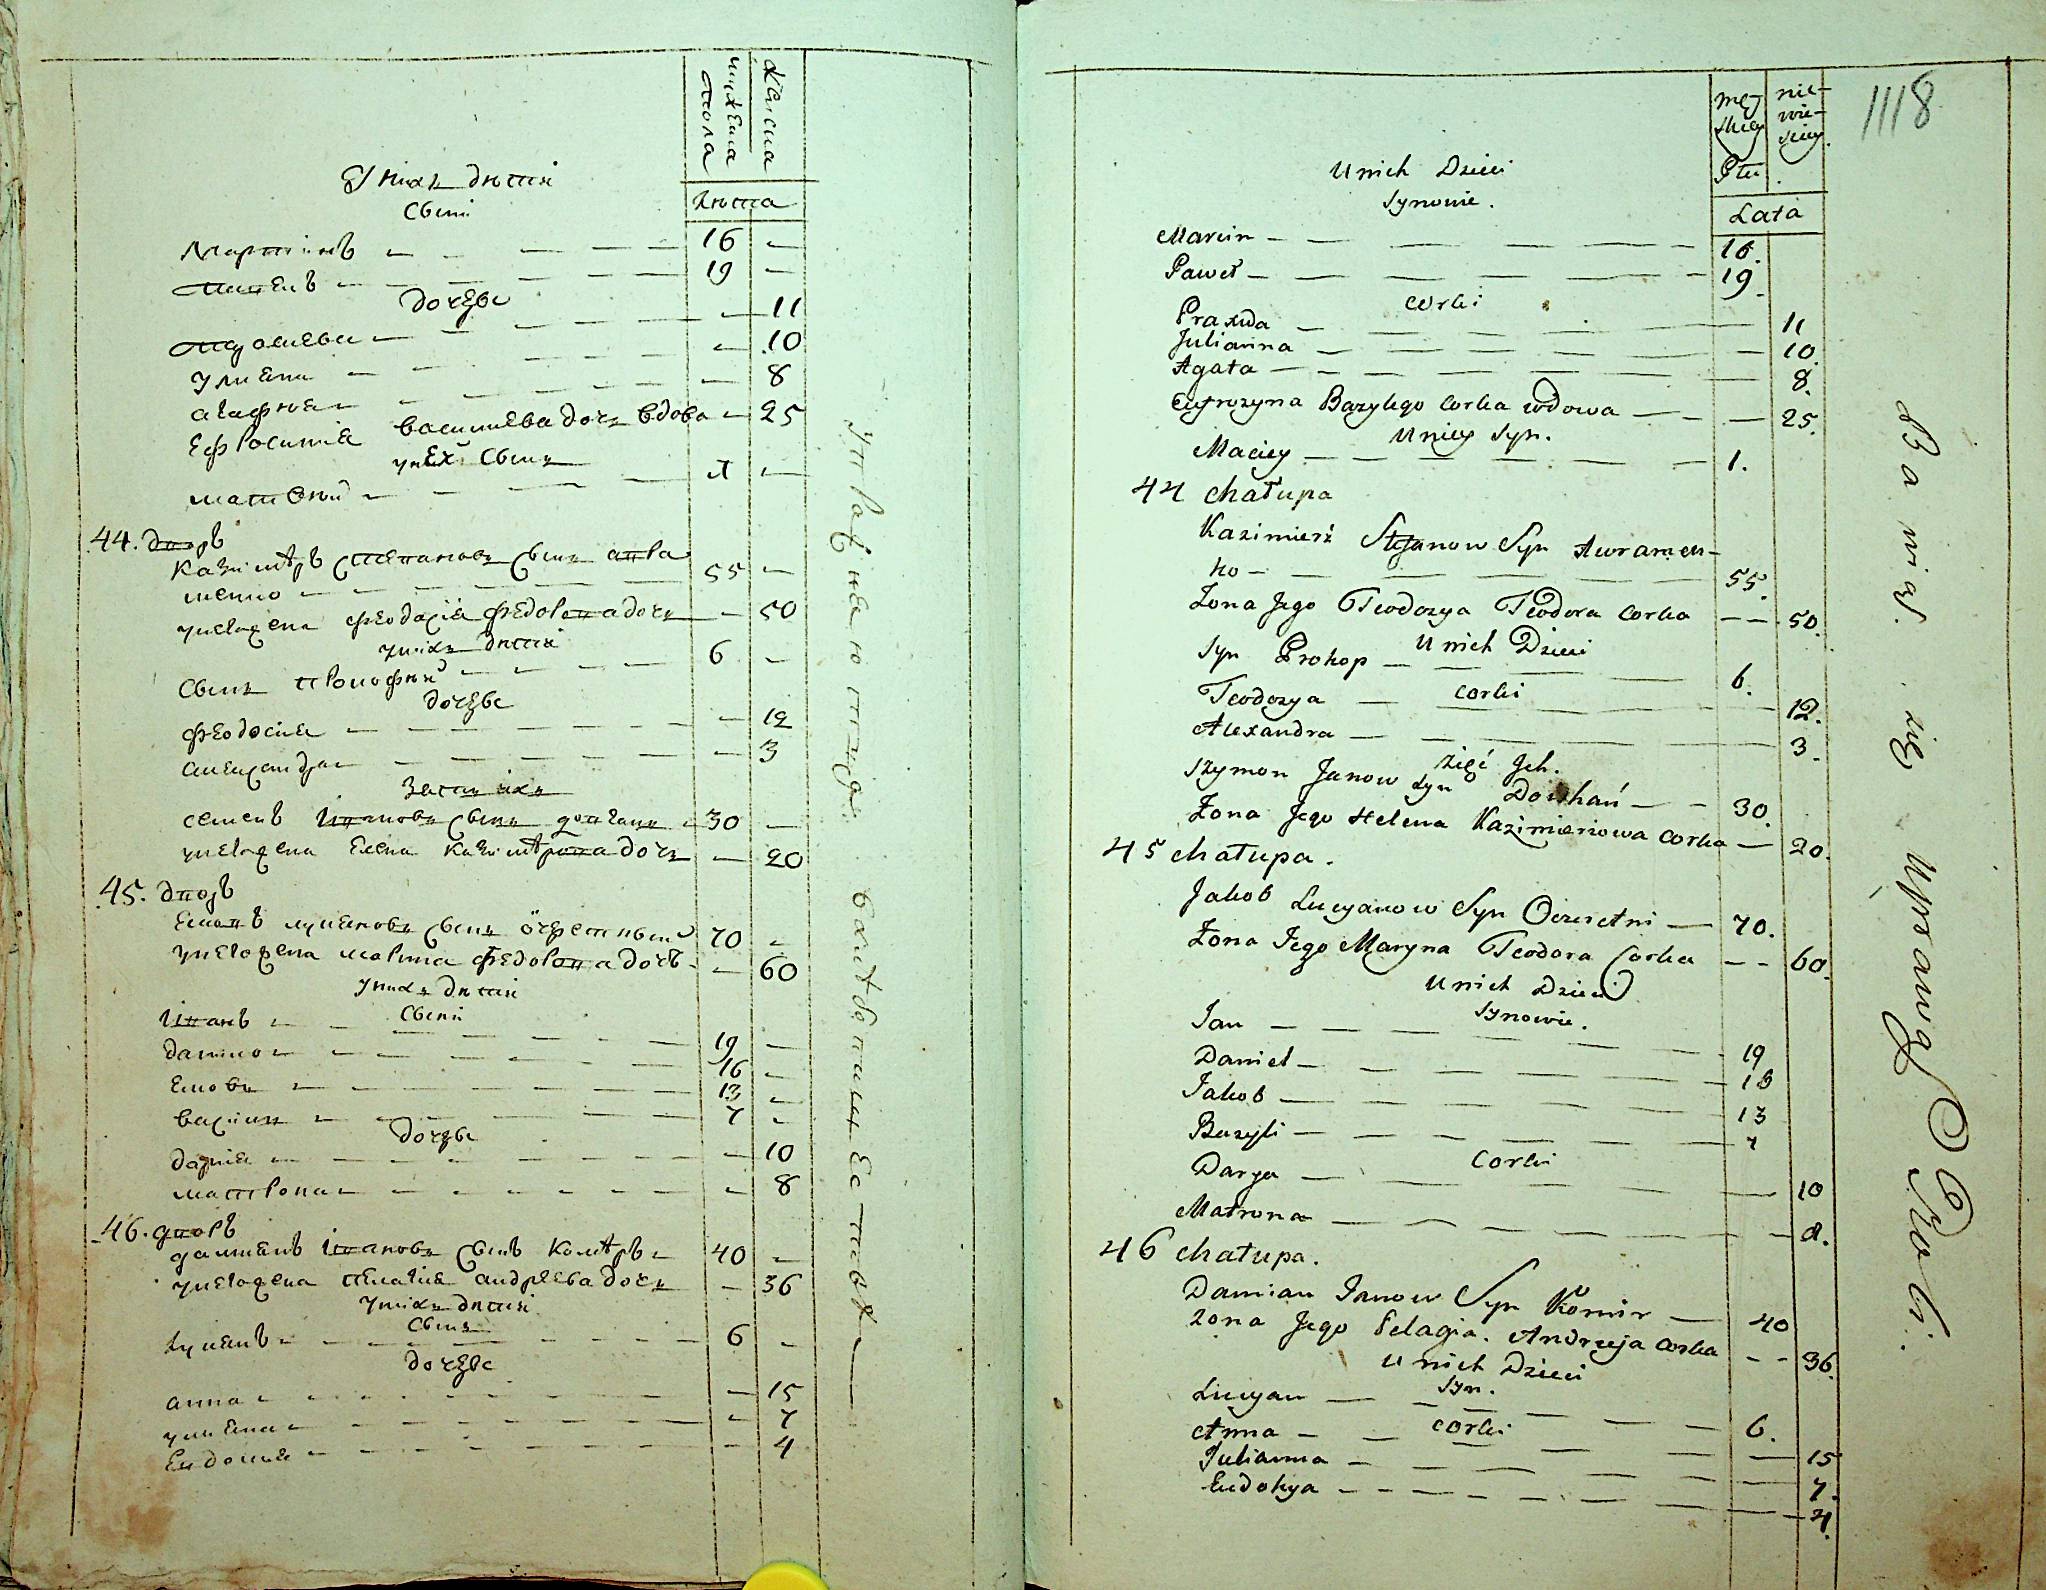 мужеска
пола
женска
лѣта
У нихъ дѣтей
сыны
Мартинъ — — — — 16 —
Павелъ — — — — 19 —
дочери
— 11
Улиана — — — — 10
Агафия — — — — 8
Ефросиния васильева дочь вдова — 25
у нее сынъ
матвѣй — — — 1 —
44. дворъ
Казимѣръ степановъ сынъ авра
менко — — — — 55 —
у него жена феодосия федорова дочь — 50
у нихъ дѣтей
сынъ прокофий — — — 6 —
дочери
феодосия — — — — 12
александра — — — — 3
зять ихъ
семенъ Ивановъ сынъ довгань 30 —
у него жена Елена Казимѣрова дочь — 20
45. дворъ
Емовъ лукянов сынъ 70 —
у него жена марина федорова дочь — 60
у нихъ дѣтей
сыны
Иванъ — — — — 19 —
данило — — — — 16 —
Емовъ — — — — 13 —
васили — — — — 7 —
дочери
дария — — — — 10
матрона — — — — 8
46. дворъ
дамианъ Ивановъ сынъ Комѣръ 40 —
у него жена пелагия андреева дочь — 36
у нихъ дѣтей
сынъ
лукянъ — — — — 6 —
дочери
анна — — — — 15
улиана — — — — 7
Евдокия — — — — 4
1118
męz-
skiey
Płci
nie-
wie-
sciey
Lata
U nich Dzieci
Synowie.
Marcin — — — — 16.
Paweł — — — — 19.
Corki
Praxeda — — — — 11
Julianna — — — — 10.
Agata — — — — 8.
Eufrozyna Bazylego Corka wdowa — — 25.
U niey Syn.
Maciey — — — — 1.
44 chałupa
Kazimierz Stefanow Syn Awramen-
ko — — — — 55.
Zona Jego Teodozya Teodora Corka — — 50.
U nich Dzieci
Syn Prokop — — — 6.
Corki
Teodozya — — — — 12.
Alexandra — — — — 3.
Zięć Jch.
Szymon Janow Syn Dowhań — — 30.
Zona Jego Helena Kazimierzowa Corka — 20.
45 chałupa.
Jakob Lucyanow Syn Oczeretni — 70.
Zona Jego Maryna Teodora Corka — — 60.
U nich Dzieci
Synowie.
Jan — — — — 19
Daniel — — — — 16
Jakob — — — — 13
Bazyli — — — — 7
Corki
Darya — — — — 10
Matrona — — — — 8.
46 chałupa.
Damian Janow Syn Komir — 40
Zona Jego Pelagia. Andrzeja Corka — — 36.
U nich Dzieci
Syn.
Lucyan — — — — 6.
Corki
Anna — — — — 15
Julianna — — — — 7.
Eudokya — — — — 4.
Bawiął się Uprawą Roli.